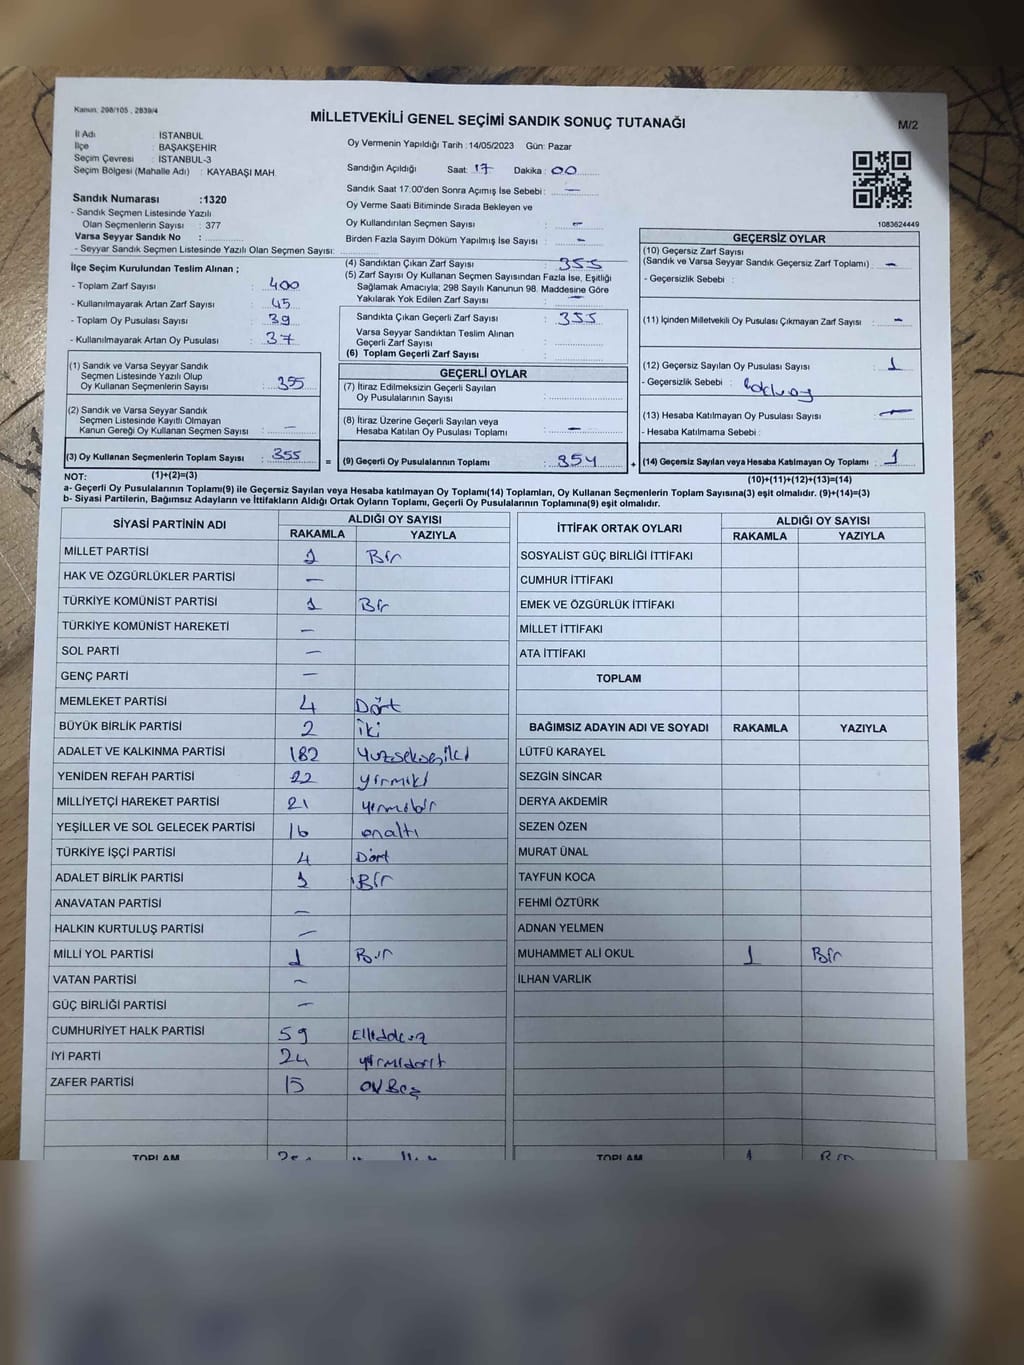 Kanun: 298/105 , 2839/4
MİLLETVEKİLİ GENEL SEÇİMİ SANDIK SONUÇ TUTANAĞI
M/2
İl Adı : İSTANBUL
İlçe : BAŞAKŞEHİR
Seçim Çevresi : İSTANBUL-3
Seçim Bölgesi (Mahalle Adı) : KAYABAŞI MAH.
Sandık Numarası :1320
- Sandık Seçmen Listesinde Yazılı
Olan Seçmenlerin Sayısı : 377
Varsa Seyyar Sandık No :
- Seyyar Sandık Seçmen Listesinde Yazılı Olan Seçmen Sayısı:
İlçe Seçim Kurulundan Teslim Alınan ;
- Toplam Zarf Sayısı : 400
- Kullanılmayarak Artan Zarf Sayısı : 45
- Toplam Oy Pusulası Sayısı : 39
- Kullanılmayarak Artan Oy Pusulası : 37
(1) Sandık ve Varsa Seyyar Sandık
Seçmen Listesinde Yazılı Olup
Oy Kullanan Seçmenlerin Sayısı : 355
(2) Sandık ve Varsa Seyyar Sandık
Seçmen Listesinde Kayıtlı Olmayan
Kanun Gereği Oy Kullanan Seçmen Sayısı : —
(3) Oy Kullanan Seçmenlerin Toplam Sayısı : 355
(1)+(2)=(3)
Oy Vermenin Yapıldığı Tarih : 14/05/2023 Gün: Pazar
Sandığın Açıldığı Saat: 17 Dakika : 00
Sandık Saat 17:00'den Sonra Açımış İse Sebebi : —
Oy Verme Saati Bitiminde Sırada Bekleyen ve
Oy Kullandırılan Seçmen Sayısı : —
Birden Fazla Sayım Döküm Yapılmış İse Sayısı : —
(4) Sandıktan Çıkan Zarf Sayısı : 355
(5) Zarf Sayısı Oy Kullanan Seçmen Sayısından Fazla İse, Eşitliği
Sağlamak Amacıyla; 298 Sayılı Kanunun 98. Maddesine Göre
Yakılarak Yok Edilen Zarf Sayısı : —
Sandıkta Çıkan Geçerli Zarf Sayısı : 355
Varsa Seyyar Sandıktan Teslim Alınan
Geçerli Zarf Sayısı :
(6) Toplam Geçerli Zarf Sayısı :
GEÇERLİ OYLAR
(7) İtiraz Edilmeksizin Geçerli Sayılan
Oy Pusulalarının Sayısı :
(8) İtiraz Üzerine Geçerli Sayılan veya
Hesaba Katılan Oy Pusulası Toplamı : —
= (9) Geçerli Oy Pusulalarının Toplamı : 354 +
1083624449
GEÇERSİZ OYLAR
(10) Geçersiz Zarf Sayısı
(Sandık ve Varsa Seyyar Sandık Geçersiz Zarf Toplamı) : —
- Geçersizlik Sebebi :
(11) İçinden Milletvekili Oy Pusulası Çıkmayan Zarf Sayısı : —
(12) Geçersiz Sayılan Oy Pusulası Sayısı : 1
- Geçersizlik Sebebi :
(13) Hesaba Katılmayan Oy Pusulası Sayısı : —
- Hesaba Katılmama Sebebi :
(14) Geçersiz Sayılan veya Hesaba Katılmayan Oy Toplamı : 1
(10)+(11)+(12)+(13)=(14)
NOT:
a- Geçerli Oy Pusulalarının Toplamı(9) ile Geçersiz Sayılan veya Hesaba katılmayan Oy Toplamı(14) Toplamları, Oy Kullanan Seçmenlerin Toplam Sayısına(3) eşit olmalıdır. (9)+(14)=(3)
b- Siyasi Partilerin, Bağımsız Adayların ve İttifakların Aldığı Ortak Oyların Toplamı, Geçerli Oy Pusulalarının Toplamına(9) eşit olmalıdır.
SİYASİ PARTİNİN ADI ALDIĞI OY SAYISI
RAKAMLA YAZIYLA
MİLLET PARTİSİ 1 Bir
HAK VE ÖZGÜRLÜKLER PARTİSİ —
TÜRKİYE KOMÜNİST PARTİSİ 1 Bir
TÜRKİYE KOMÜNİST HAREKETİ —
SOL PARTİ —
GENÇ PARTİ —
MEMLEKET PARTİSİ 4 Dört
BÜYÜK BİRLİK PARTİSİ 2 iki
ADALET VE KALKINMA PARTİSİ 182 Yüzsekseniki
YENİDEN REFAH PARTİSİ 22 yirmiki
MİLLİYETÇİ HAREKET PARTİSİ 21 yirmibir
YEŞİLLER VE SOL GELECEK PARTİSİ 16 onaltı
TÜRKİYE İŞÇİ PARTİSİ 4 Dört
ADALET BİRLİK PARTİSİ 1 Bir
ANAVATAN PARTİSİ —
HALKIN KURTULUŞ PARTİSİ —
MİLLİ YOL PARTİSİ 1 Bir
VATAN PARTİSİ —
GÜÇ BİRLİĞİ PARTİSİ —
CUMHURİYET HALK PARTİSİ 59 Ellidokuz
İYİ PARTİ 24 yirmidört
ZAFER PARTİSİ 15 on Beş
TOPLAM
İTTİFAK ORTAK OYLARI ALDIĞI OY SAYISI
RAKAMLA YAZIYLA
SOSYALİST GÜÇ BİRLİĞİ İTTİFAKI
CUMHUR İTTİFAKI
EMEK VE ÖZGÜRLÜK İTTİFAKI
MİLLET İTTİFAKI
ATA İTTİFAKI
TOPLAM
BAĞIMSIZ ADAYIN ADI VE SOYADI RAKAMLA YAZIYLA
LÜTFÜ KARAYEL
SEZGİN SİNCAR
DERYA AKDEMİR
SEZEN ÖZEN
MURAT ÜNAL
TAYFUN KOCA
FEHMİ ÖZTÜRK
ADNAN YELMEN
MUHAMMET ALİ OKUL 1 Bir
İLHAN VARLIK
TOPLAM 1 Bir